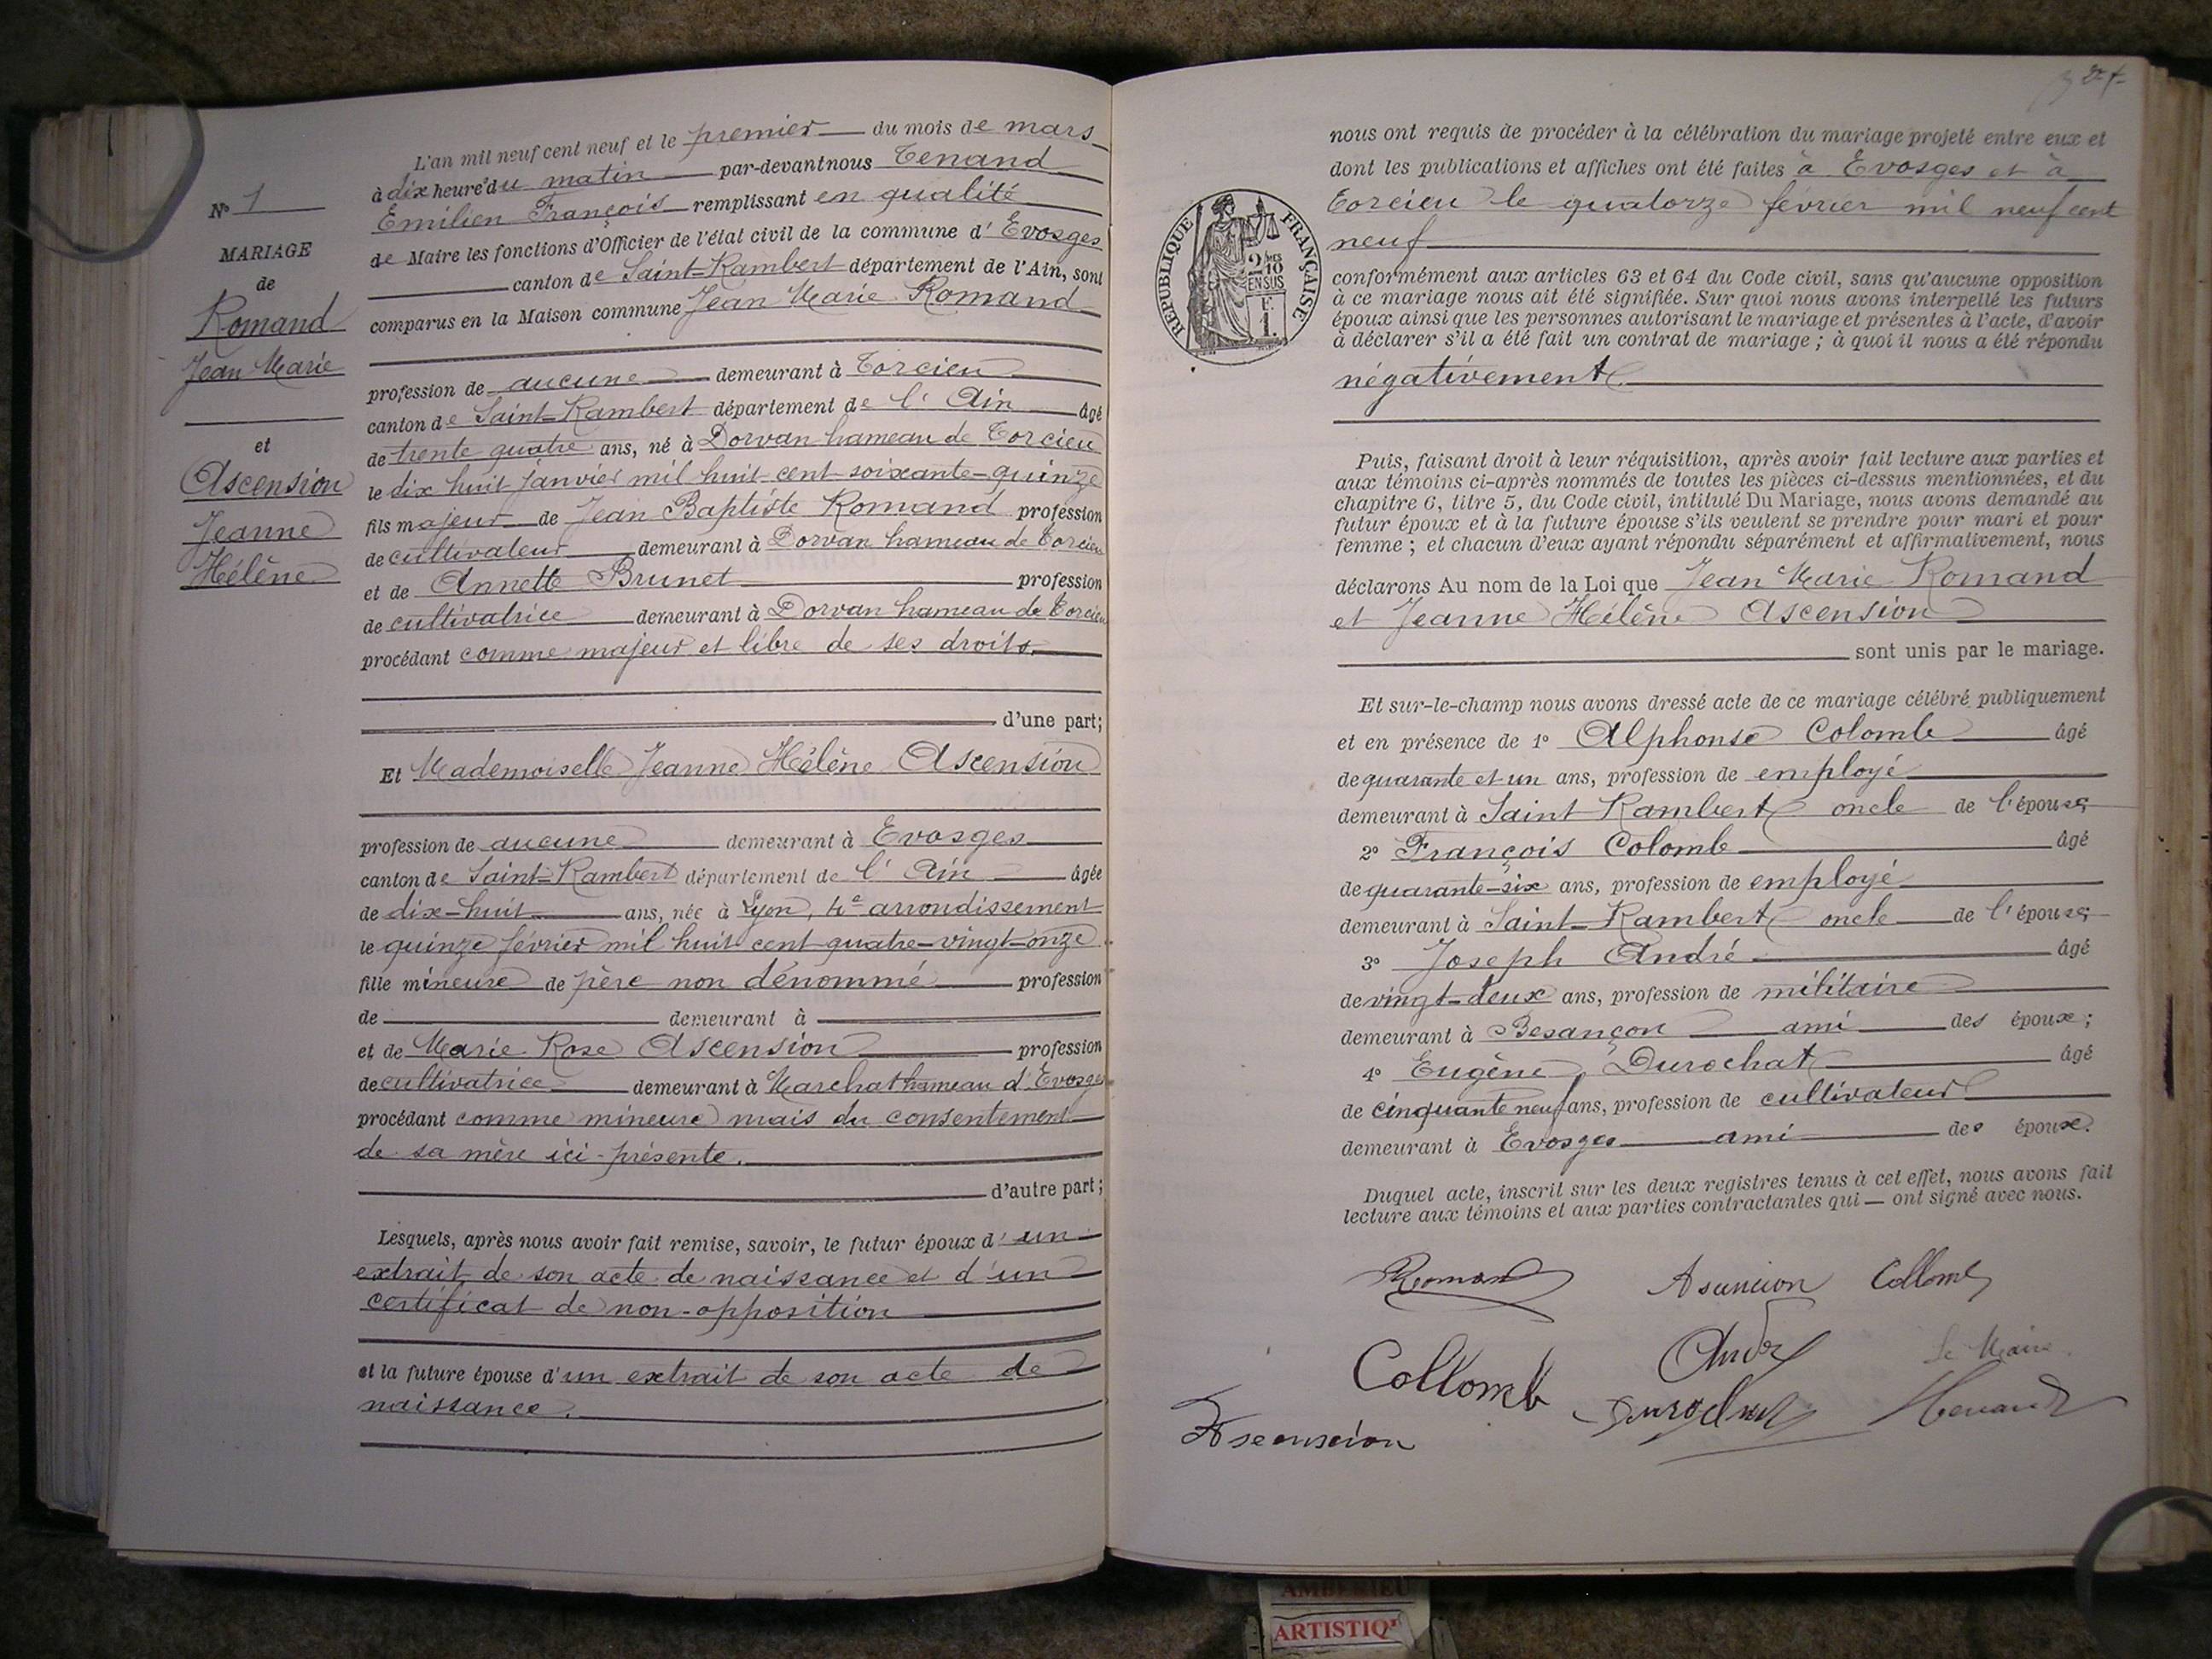 L'an mil neuf cent neuf et le premier du mois de mars
à dix heures du matin par-devant nous Tenand
Emilien François remplissant en qualité
de Maire les fonctions d'Officier de l'état civil de la commune d'Evosges
canton de Saint-Rambert département de l'Ain, sont
comparus en la Maison commune Jean Marie Romand
profession de aucune demeurant à Torcieu
canton de Saint-Rambert département de l'Ain âgé
de trente quatre ans, né à Dorvan hameau de Torcieu
le dix huit janvier mil huit cent soixante-quinze
fils majeur de Jean Baptiste Romand profession
de cultivateur demeurant à Dorvan hameau de Torcieu
et de Annette Brunet profession
de cultivatrice demeurant à Dorvan hameau de Torcieu
procédant comme majeur et libre de ses droits.
d'une part;
Et Mademoiselle Jeanne Hélène Ascension
profession de aucune demeurant à Evosges
canton de Saint-Rambert département de l'Ain âgée
de dix-huit ans, née à Lyon, 4e arrondissement
le quinze février mil huit cent quatre-vingt-onze
fille mineure de père non dénommé profession
de demeurant à
et de Marie Rose Ascension profession
de cultivatrice demeurant à Marchat hameau d'Evosges
procédant comme mineure mais du consentement
de sa mère ici-présente.
d'autre part;
Lesquels, après nous avoir fait remise, savoir, le futur époux d'un
extrait de son acte de naissance et d'un
certificat de non-opposition
et la future épouse d'un extrait de son acte de
naissance.
No 1
MARIAGE
de
Romand
Jean Marie
et
Ascension
Jeanne
Hélène
nous ont requis de procéder à la célébration du mariage projeté entre eux et
dont les publications et affiches ont été faites à Evosges et à
Torcieu le quatorze février mil neuf cent
neuf
conformément aux articles 63 et 64 du Code civil, sans qu'aucune opposition
à ce mariage nous ait été signifiée. Sur quoi nous avons interpellé les futurs
époux ainsi que les personnes autorisant le mariage et présentes à l'acte, d'avoir
à déclarer s'il a été fait un contrat de mariage; à quoi il nous a été répondu
négativement.
RÉPUBLIQUE FRANÇAISE
2/10
EN SUS
1F.
Puis, faisant droit à leur réquisition, après avoir fait lecture aux parties et
aux témoins ci-après nommés de toutes les pièces ci-dessus mentionnées, et du
chapitre 6, titre 5, du Code civil, intitulé Du Mariage, nous avons demandé au
futur époux et à la future épouse s'ils veulent se prendre pour mari et pour
femme; et chacun d'eux ayant répondu séparément et affirmativement, nous
déclarons Au nom de la Loi que Jean Marie Romand
et Jeanne Hélène Ascension
sont unis par le mariage.
Et sur-le-champ nous avons dressé acte de ce mariage célébré publiquement
et en présence de 1o Alphonse Colomb âgé
de quarante et un ans, profession de employé
demeurant à Saint Rambert oncle de l'épouse;
2o François Colomb âgé
de quarante-six ans, profession de employé
demeurant à Saint-Rambert oncle de l'épouse;
3o Joseph André âgé
de vingt-deux ans, profession de militaire
demeurant à Besançon ami des époux;
4o Eugène Durochat âgé
de cinquante neuf ans, profession de cultivateur
demeurant à Evosges ami des époux.
Duquel acte, inscrit sur les deux registres tenus à cet effet, nous avons fait
lecture aux témoins et aux parties contractantes qui — ont signé avec nous.
Romand Asencion Collomb
Collomb André Le Maire
Durochat Tenand
Ascenscion
AMBERIEU
ARTISTIQ